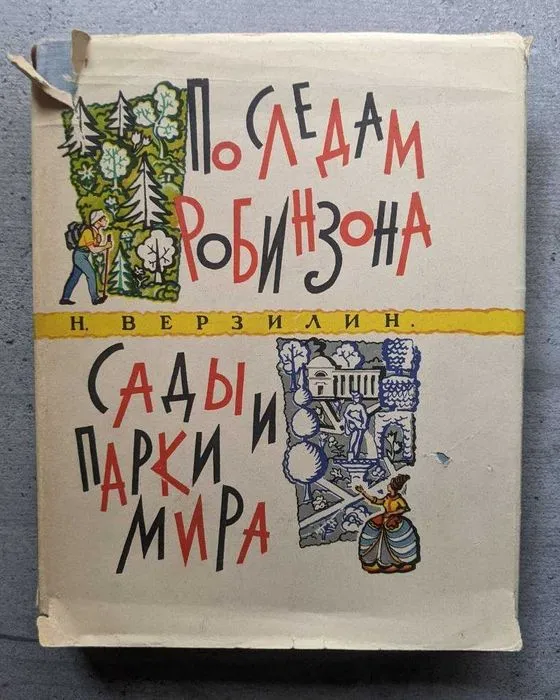 ПО СЛЕДАМ
РОБИНЗОНА
Н. ВЕРЗИЛИН.
САДЫ И
ПАРКИ
МИРА